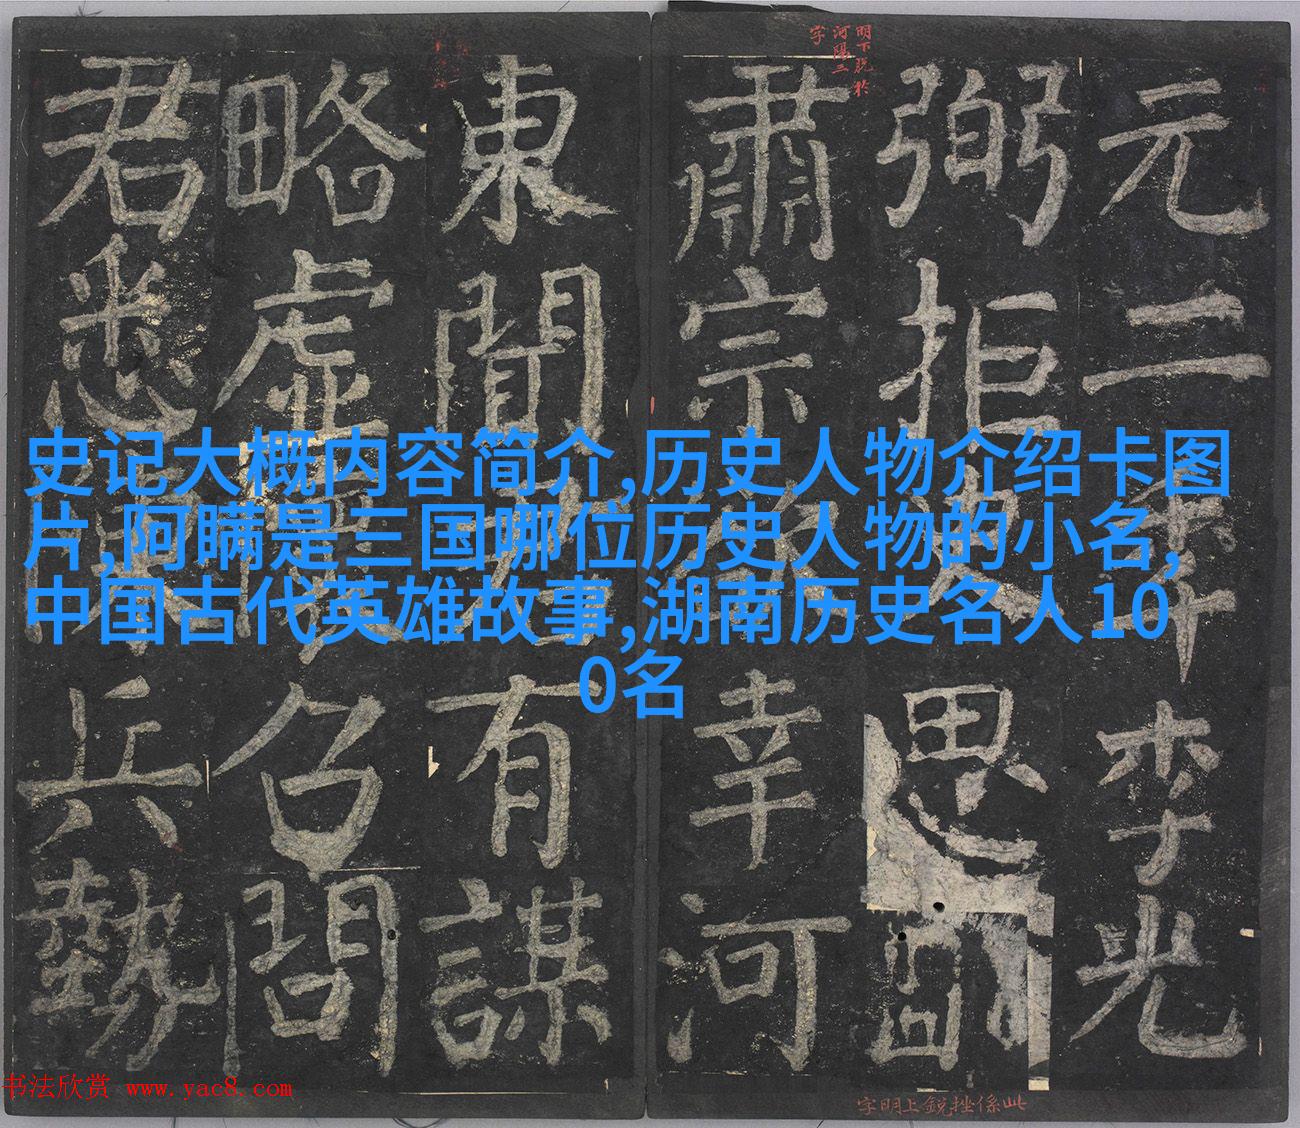 史记大概内容简介,历史人物介绍卡图
片,阿瞒是三国哪位历史人物的小名,
中国古代英雄故事,湖南历史名人10
0名
明下脱於
河陽二
字
元二
李光
弼拒
思
肅宗
幸河
東聞
有謀
略虛
召問
君悉
兵勢
此係挫銳上明字
书法欣赏 www.yac8.com